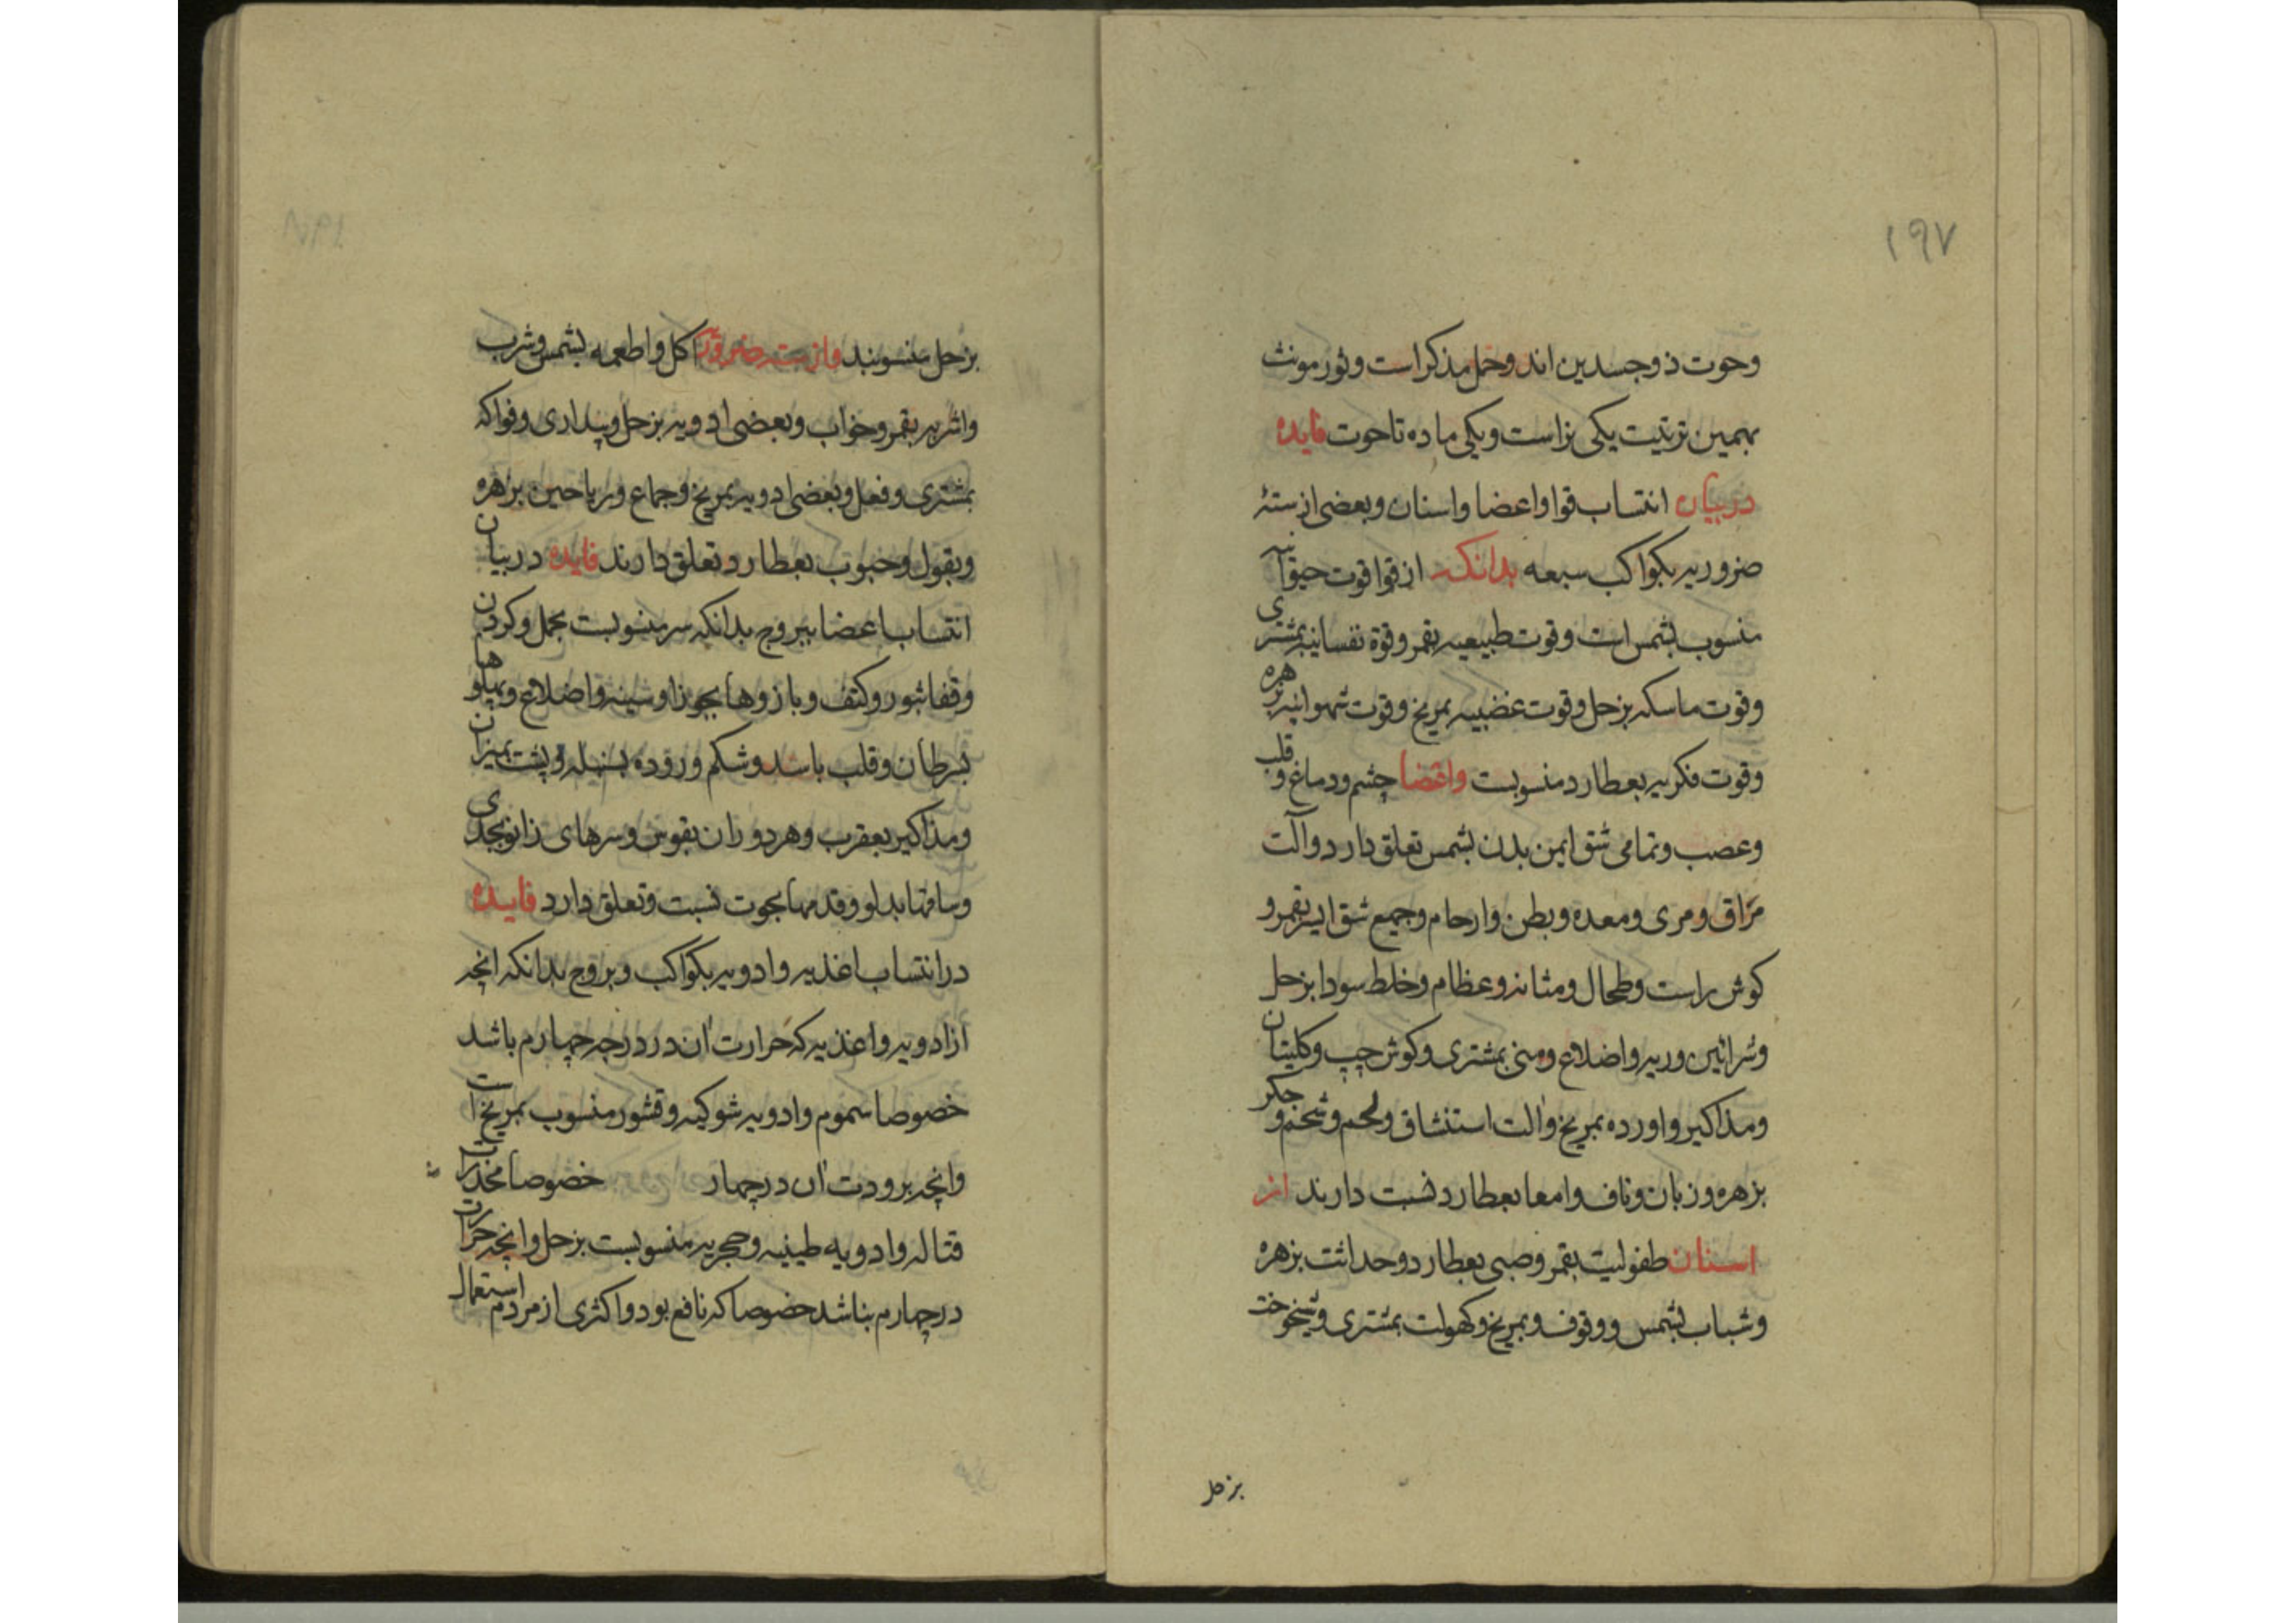 ۱۹۷
وحوت ذوجسدین اند وحمل مذکر است وثور مونث
بهمین ترتیت یکی نراست ویکی ماده تاحوت فایده
دربیان انتساب قوا واعضا واسنان وبعضی ازستهٔ
ضروریه بکواکب سبعه بدانکه ازقوا قوت حیوانیه
منسوب بشمس است وقوت طبیعیه بقمر وقوة نفسانیه بمشتری
وقوت ماسکه بزحل وقوت غضبیه بمریخ وقوت شهوانیه بزهره
وقوت فکریه بعطارد منسوبست واعضا چشم ودماغ وقلب
وعصب وتمامی شق ایمن بدن بشمس تعلق دارد وآلت
مراق ومری ومعده وبطن وارحام وجمیع شق ایسر بقمر و
کوش راست وطحال ومثانه وعظام وخلط سودا بزحل
وشرائین وریه واضلاع ومنی بمشتری وکوش چپ وکلیتان
ومذاکیر واورده بمریخ والت استنشاق ولحم وشحم وجکر
بزهره وزبان وناف وامعا بعطارد نسبت دارند از
اسنان طفولیت بقمر وصبی بعطارد وحداثت بزهره
وشباب بشمس ووقوف وبمریخ وکهولت بمشتری وشیخوخت
بزحل
بزحل منسوبند وازسته ضروریه اکل واطعمه بشمس وشرب
واشربه بقمر وخواب وبعضی ادویه بزحل وبیداری وفواکه
بمشتری وفعل وبعضی ادویه بمریخ وجماع وریاحین بزهره
وبقول وحبوب بعطارد تعلق دارند فایده دربیان
انتساب اعضا ببروج بدانکه سر منسوبست بحمل وکردن
وقفا بثور وکتف وبازوها بجوزا وسینه واضلاع وپهلوها
بسرطان وقلب باسد وشکم وروده بسنبله وپشت بمیزان
ومذاکیر بعقرب وهردو ران بقوس وسرهای زانو بجدی
وساقها بدلو وقدمها بحوت نسبت وتعلق دارد فایده
درانتساب اغذیه وادویه بکواکب وبروج بدانکه انچه
ازادویه واغذیه که حرارت آن دردرجه چهارم باشد
خصوصا سموم وادویه شوکیه وقشور منسوب بمریخ است
وانچه برودت آن درچهار خصوصا مخدرات
قتاله وادویه طینیه وحجریه منسوبست بزحل وانچه حرارت
درچهارم بناشد خصوصا که نافع بود واکثری ازمردم استعمال